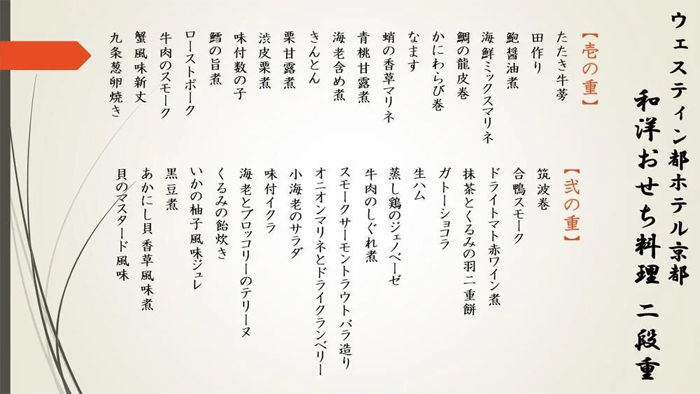 ウェスティン都ホテル京都
和洋おせち料理 二段重
【壱の重】
たたき牛蒡
田作り
鮑醤油煮
海鮮ミックスマリネ
鯛の龍皮巻
かにわらび巻
なます
蛸の香草マリネ
青桃甘露煮
海老含め煮
きんとん
栗甘露煮
渋皮栗煮
味付数の子
鱈の旨煮
ローストポーク
牛肉のスモーク
蟹風味新丈
九条葱卵焼き
【弐の重】
筑波巻
合鴨スモーク
ドライトマト赤ワイン煮
抹茶とくるみの羽二重餅
ガトーショコラ
生ハム
蒸し鶏のジェノベーゼ
牛肉のしぐれ煮
スモークサーモントラウトバラ造り
オニオンマリネとドライクランベリー
小海老のサラダ
味付イクラ
海老とブロッコリーのテリーヌ
くるみの飴炊き
いかの柚子風味ジュレ
黒豆煮
あかにし貝香草風味煮
貝のマスタード風味